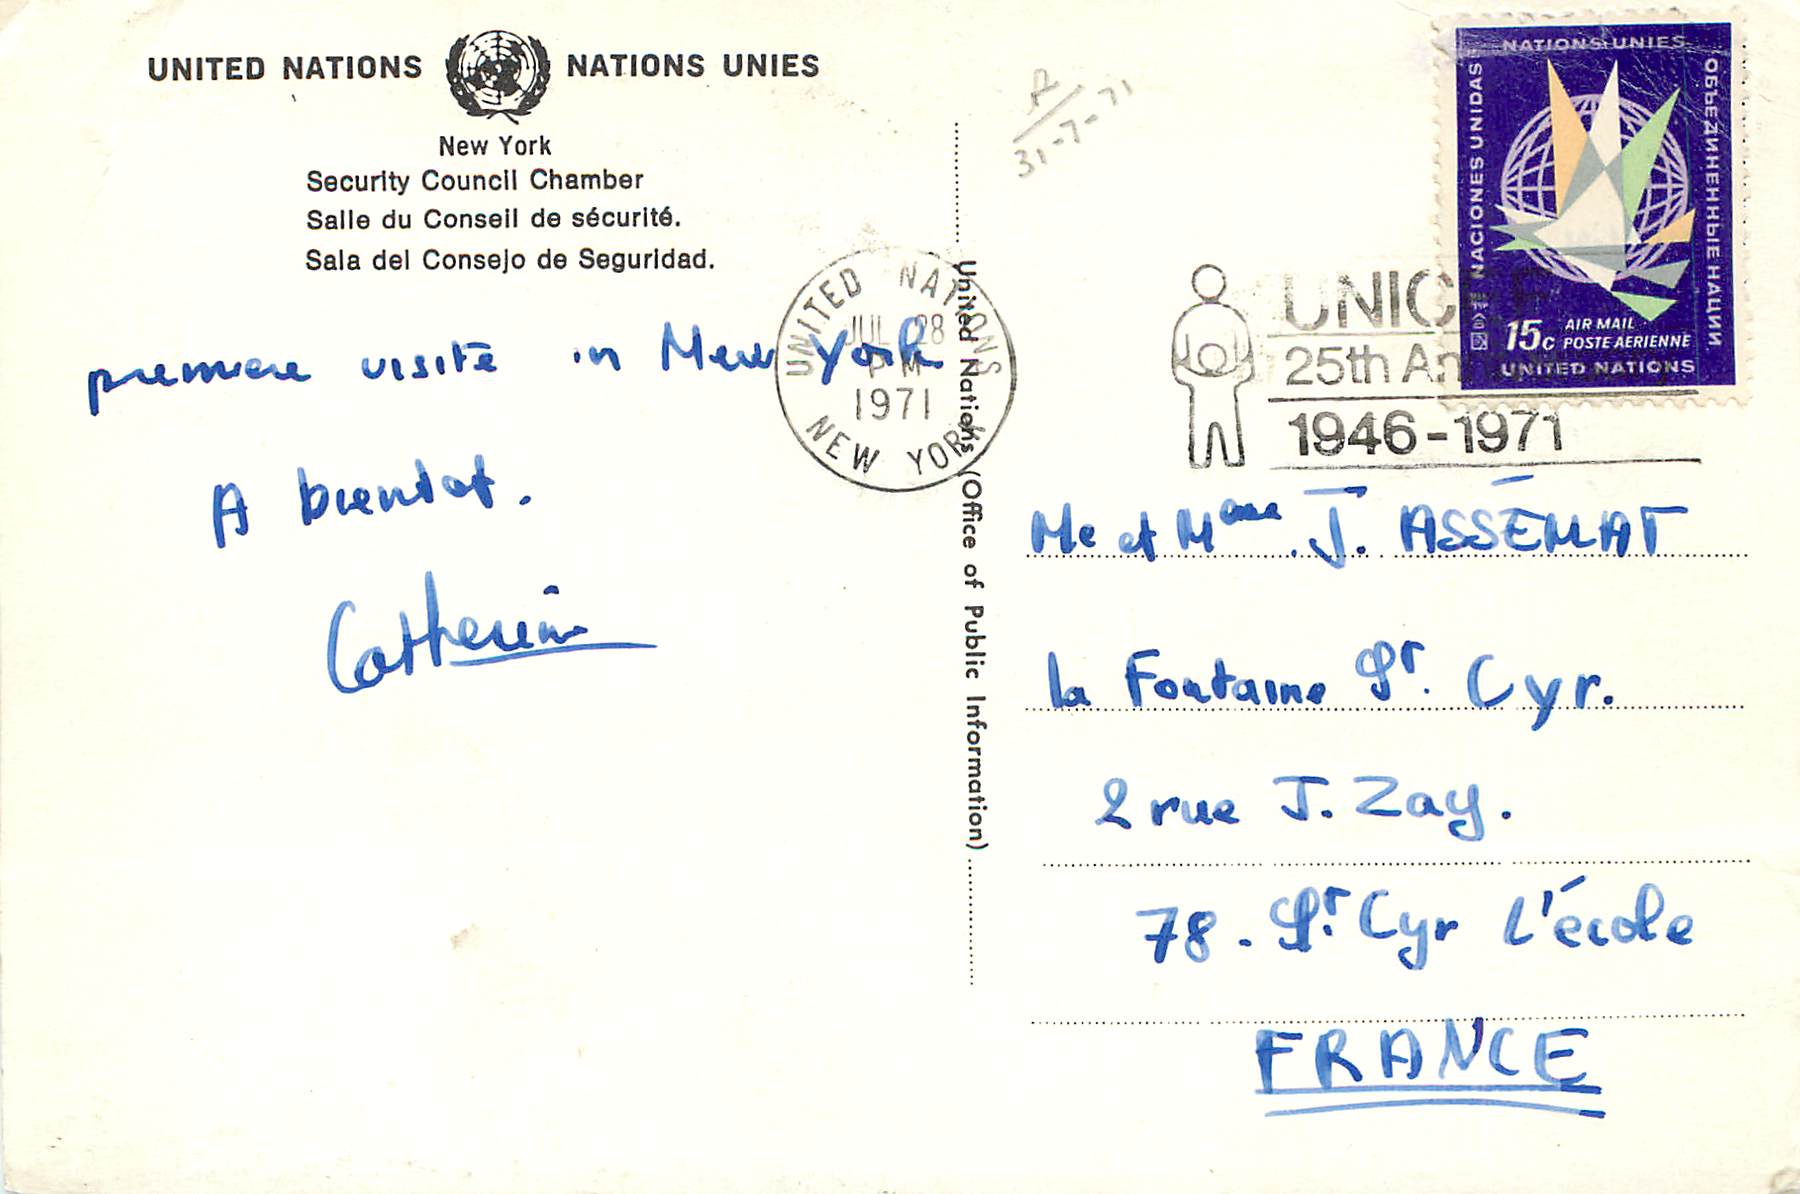 UNITED NATIONS NATIONS UNIES
New York
Security Council Chamber
Salle du Conseil de sécurité.
Sala del Consejo de Seguridad.
premiere visite in New York
A bientot.
Catherine
UNITED NATIONS
JUL 28
PM
1971
NEW YORK
United Nations (Office of Public Information)
R
31-7-71
UNICEF
25th Anniversary
1946-1971
NATIONS UNIES
NACIONES UNIDAS
ОБЪЕДИНЕННЫЕ НАЦИИ
15c AIR MAIL
POSTE AERIENNE
UNITED NATIONS
Mr et Mme J. ASSÉMAT
la Fontaine St. Cyr.
2 rue J. Zay.
78 - St. Cyr l'école
FRANCE